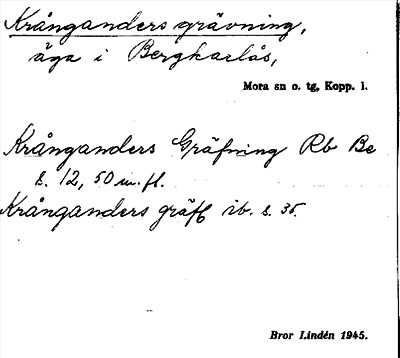 Krånganders grävning,
äga i Bergkarlås,
Mora sn o. tg, Kopp. l.
Krånganders Gräfning Rb Be
s. 12, 50 m. fl.
Krånganders gräfg ib. s. 35.
Bror Lindén 1945.